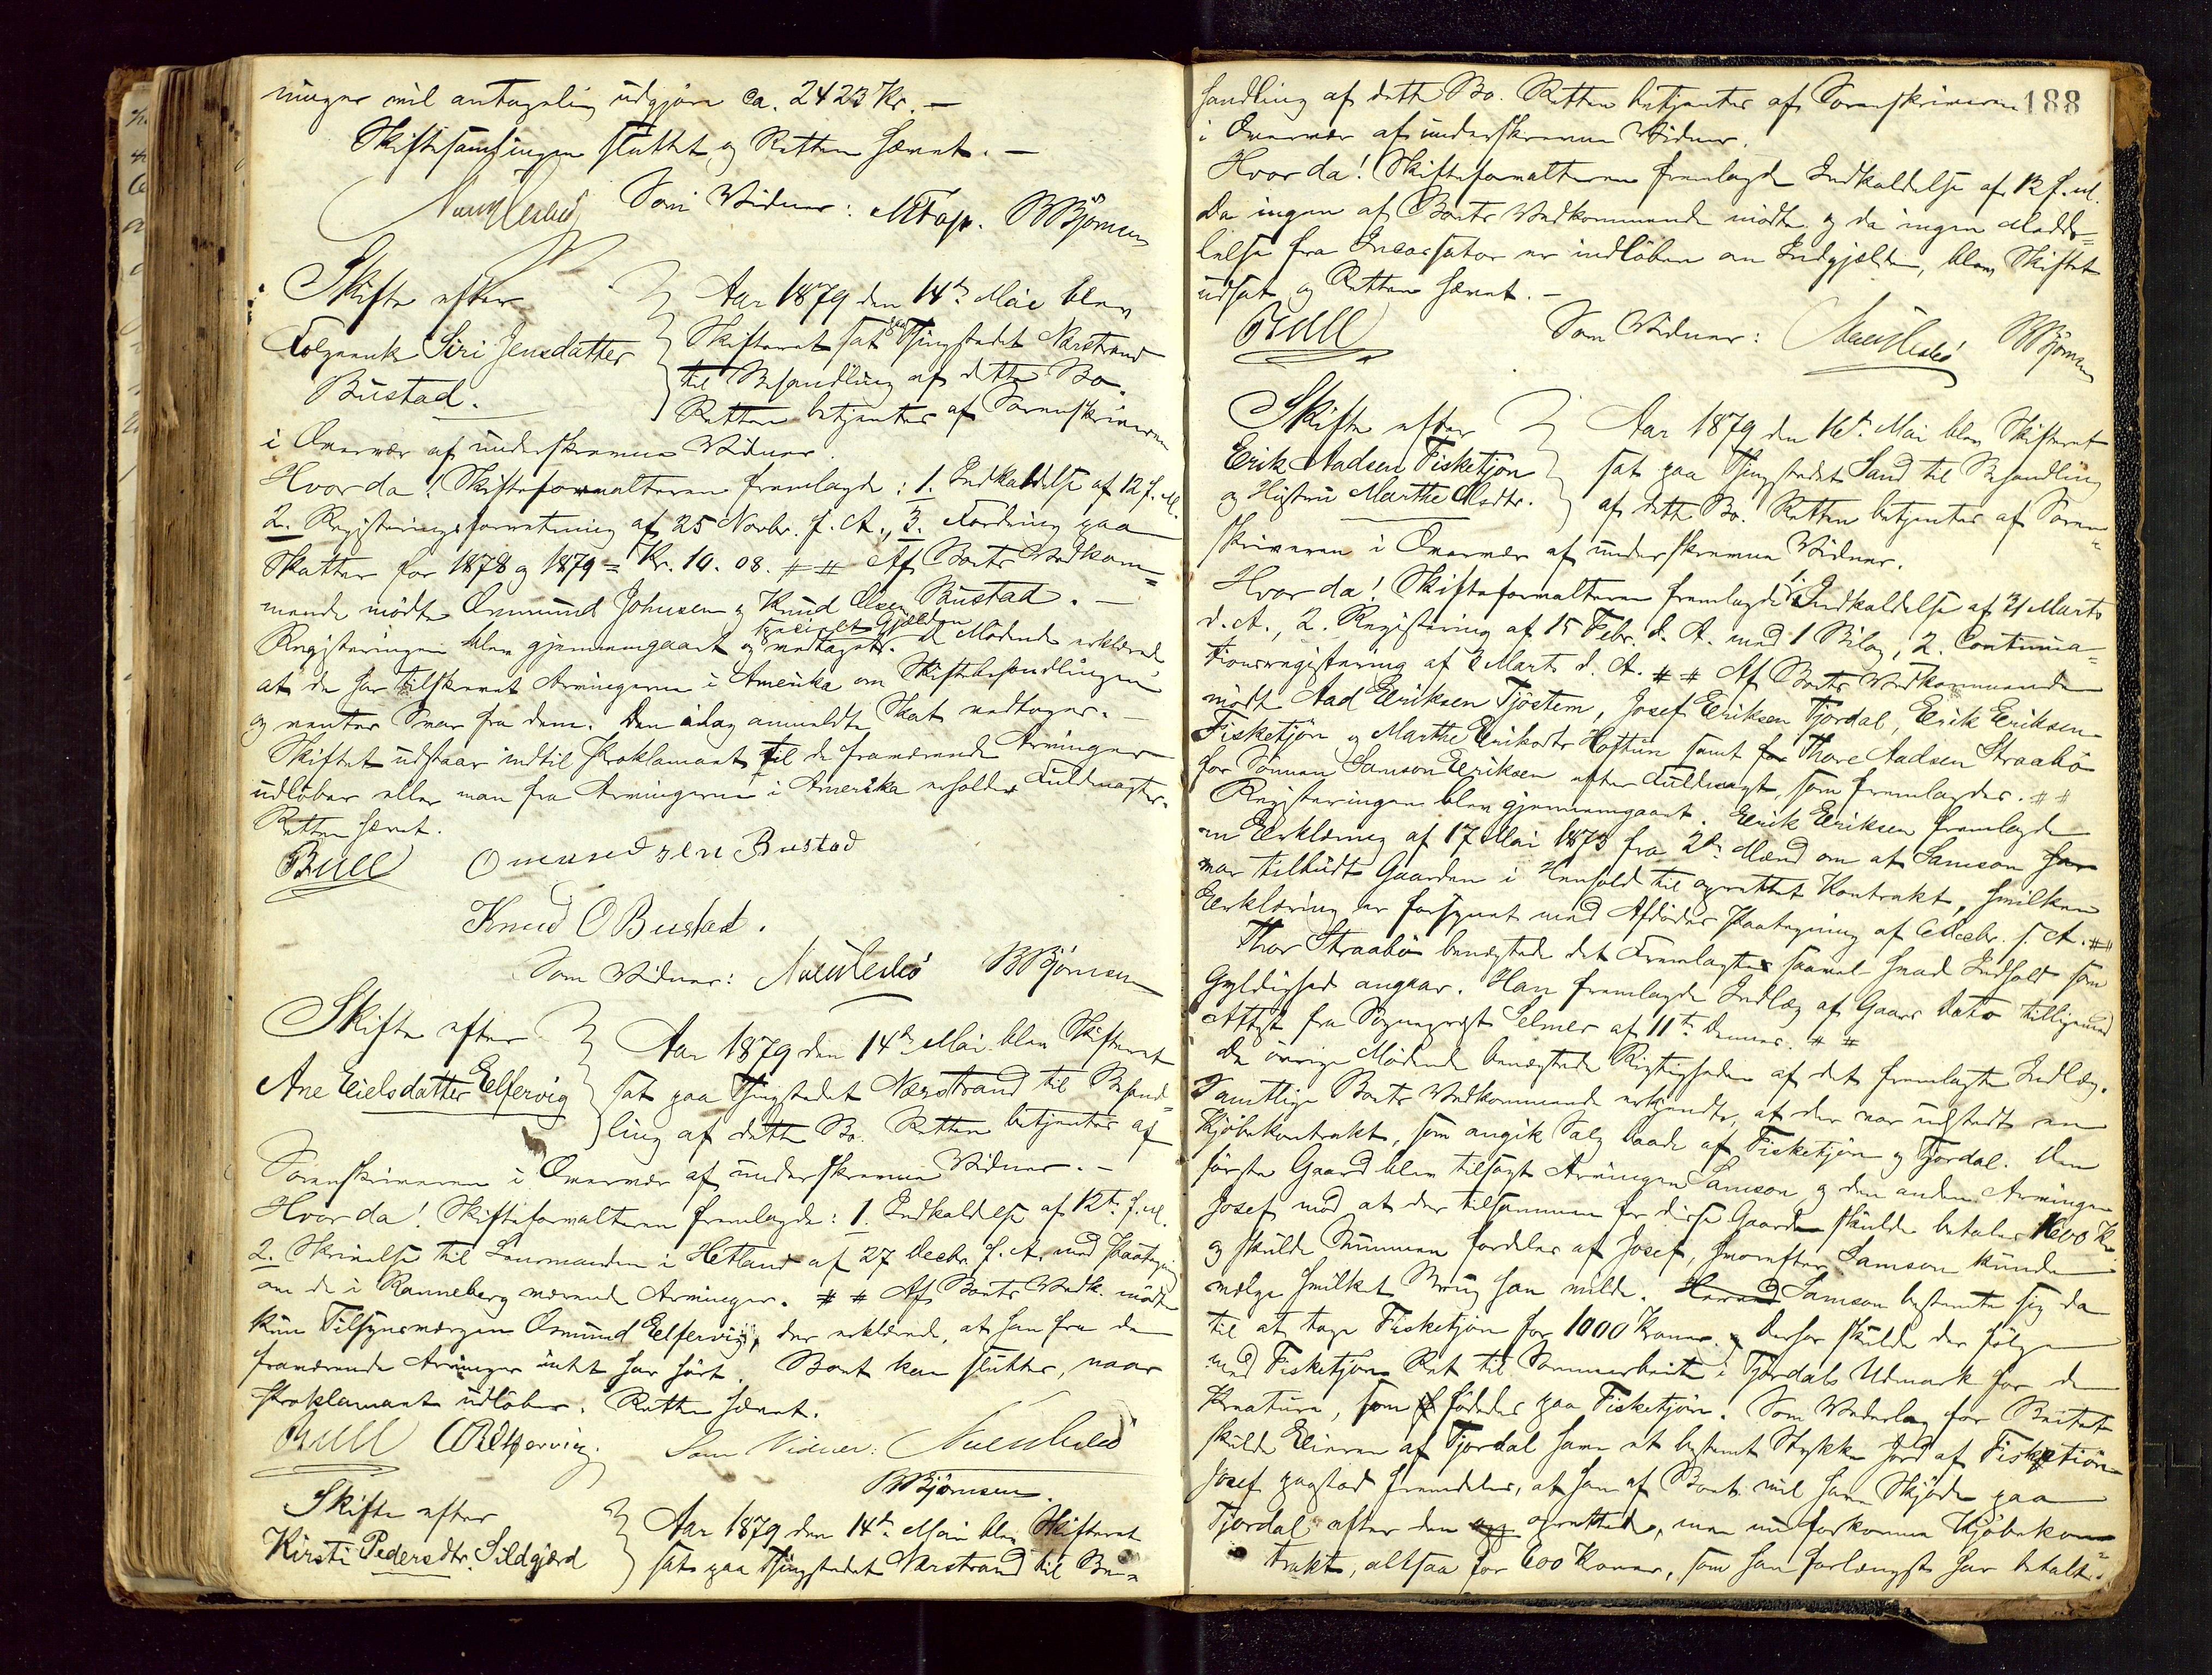 ninger vil antagelig udgjøre ca. 2423 Kr. —
Skiftesamlingen sluttet og Retten hævet. —
Som Vidner: BBjørnsen
Skifte efter
Folgeenk Siri Jensdatter
Bustad.
Aar 1879 den 14de Mai blev
Skifteret sat paa Thingstedet Nærstrand
til Behandling af dette Bo.
Retten betjentes af Sorenskriveren
i Overvær af underskrevne Vidner.
Hvor da! Skifteforvalteren fremlagde: 1. Indkaldelse af 12 f. M.
2. Registreringsforretning af 25 Novbr. f. A., 3. Fordring paa
Skatter for 1878 og 1879 = Kr. 10. 08. # # Af Boets Vedkom=
mende mødte Osmund Johnsen og Knud Olsen Bustad. —
Registeringen blev gjennemgaaet og specielt Gjælden vedtaget. De Mødende erklærede
at de har tilskrevet Arvingerne i Amerika om Skiftebehandlingen
og venter Svar fra dem. Den idag anmeldte Skat vedtoges. —
Skiftet udstaar indtil Proklamaet til de fraværende Arvinger
udløber eller man fra Arvingerne i Amerika erholder Fuldmagter.
Retten hævet.
Bull Osmund Bustad
Knud O Bustad.
Som Vidner: BBjørnsen
Skifte efter
Ane Eielsdatter Elfervig
Aar 1879 den 14de Mai blev Skifteret
sat paa Thingstedet Nærstrand til Behand=
ling af dette Bo. Retten betjentes af
Sorenskriveren i Overvær af underskrevne Vidner. —
Hvor da! Skifteforvalteren fremlagde: 1. Indkaldelse af 12te f. M.
2. Skrivelse til Lensmanden i Hetland af 27 Decbr. f. A. med Paategning
om de i Ranneberg værende Arvinger. # # Af Boets Vedk. mødte
kun Tilsynsværgen Osmund Elfervig, der erklærede, at han fra de
fraværende Arvinger intet har hørt. Boet kan sluttes, naar
Proklamaet udløber. Retten hævet.
Bull Elfervig. Som Vidner:
BBjørnsen.
Skifte efter
Kirsti Pedersdtr. Sildgjærd
Aar 1879 den 14de Mai blev Skifteret
sat paa Thingstedet Nærstrand til Be=
188
handling af dette Bo. Retten betjentes af Sorenskriveren
i Overvær af underskrevne Vidner.
Hvor da! Skifteforvalteren fremlagde Indkaldelse af 12 f. M.
Da ingen af Boets Vedkommende mødte og da ingen Medde=
lelse fra Incassator er indløben om Indgjælden, blev Skiftet
udsat og Retten hævet. —
Bull Som Vidner: BBjørnsen
Skifte efter
Erik Aadsen Fisketjøn
og Hustru Marthe Olsdtr.
Aar 1879 den 16de Mai blev Skifteret
sat paa Thingstedet Sand til Behandling
af dette Bo. Retten betjentes af Soren=
skriveren i Overvær af underskrevne Vidner.
Hvor da! Skifteforvalteren fremlagde 1. Indkaldelse af 31 Marts
d. A., 2. Registering af 15 Febr. d. A. med 1 Bilag, 2. Continua=
tionsregistering af 3 Marts d. A. # # Af Boets Vedkommende
mødte Aad Eriksen Tjøstem, Josef Eriksen Tjordal, Erik Eriksen
Fisketjøn og Marthe Eriksdtr Hoftun samt for Thore Aadsen Straabø
for Sønnen Samson Eriksen efter Fuldmagt, som fremlagdes. # #
Registeringen blev gjennemgaaet. Erik Eriksen fremlagde
en Erklæring af 17 Mai 1873 fra 2de Mænd om at Samson har
var tilbudt Gaarden i Henhold til oprettet Kontrakt, hvilken
Erklæring er forsynet med Afdødes Paategning af 6 Decbr. s. A. # #
Thor Straabø benægtede det Fremlagtes saavel hvad Indhold som
Gyldighed angaar. Han fremlagde Indlæg af Gaars Dato tilligemed
Attest fra Sogneprest Selmer af 11te dennes. # #
De øvrige Mødende benægtede Rigtigheden af det fremlagte Indlæg.
Samtlige Boets Vedkommende erkjendte, at der var udstedt en
Kjøbekontrakt, som angik Salg baade af Fisketjøn og Tjordal. Den
første Gaard blev tilsagt Arvingen Samson og den anden Arvingen
Josef mod at der tilsammen for disse Gaarde skulde betales 1600 Kr.
og skulde Summen fordeles af Josef, hvorefter Samson kunde
vælge hvilket Brug han vilde. Samson bestemte sig da
til at tage Fisketjøn for 1000 Kroner. Derhos skulde der følge
med Fisketjøn Ret til Sommerbeite i Tjordals Udmark for de
Kreature, som fødedes paa Fisketjøn. Som Vederlag for Beitet
skulde Eieren af Tjordal have et bestemt Stykke Jord af Fisketjøn
Josef paastod fremdeles, at han af Boet vil have Skjøde paa
Tjordal efter den oprettede, men nu forkomne Kjøbekon=
trakt, altsaa for 600 Kroner, som han forlængst har betalt.